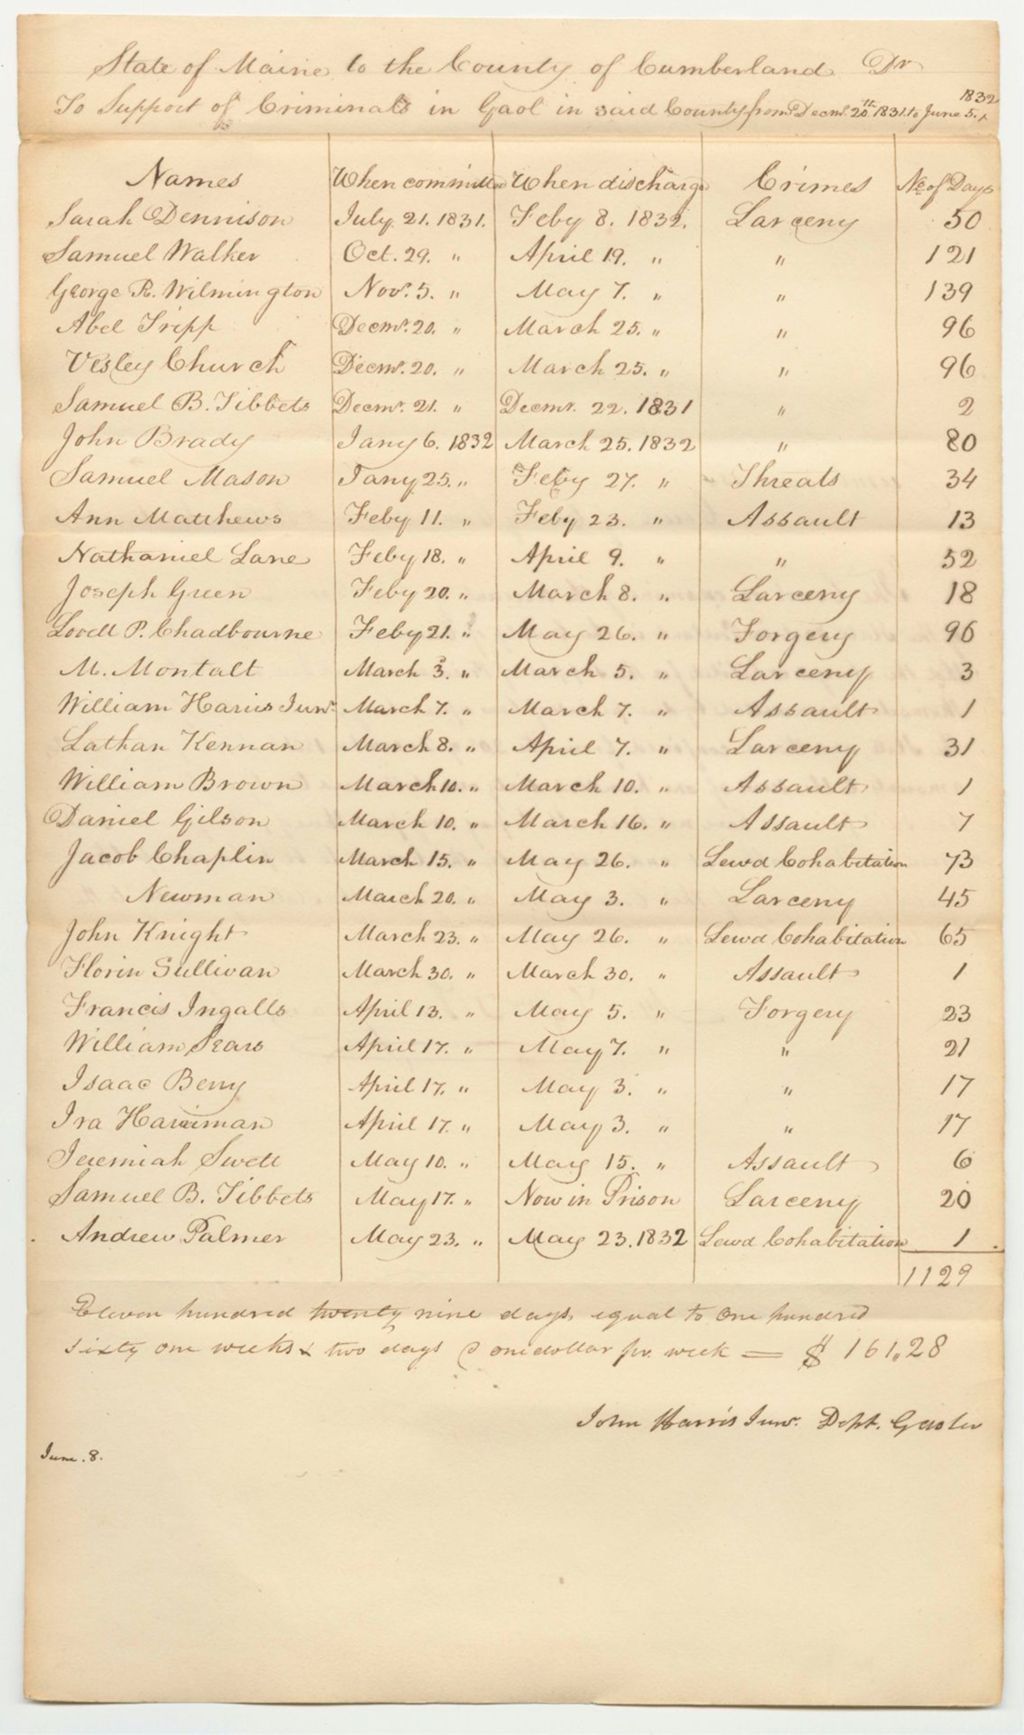 State of Maine to the County of Cumberland Dr
To Support of Criminals in Gaol in said County from Decmr. 20th 1831 to June 5. 1832
Names When committed When discharg Crimes No of Days
Sarah Dennison July 21. 1831. Feby 8. 1832. Larceny 50
Samuel Walker Oct. 29. " April 19. " " 121
George R. Wilmington Novr. 5. " May 7. " " 139
Abel Tripp Decmr. 20. " March 25. " " 96
Vesley Church Decmr. 20. " March 25. " " 96
Samuel B. Tibbets Decmr. 21. " Decmr. 22. 1831 " 2
John Brady Jany 6. 1832 March 25. 1832 " 80
Samuel Mason Jany 25. " Feby 27. " Threats 34
Ann Matthews Feby 11. " Feby 23. " Assault 13
Nathaniel Lane Feby 18. " April 9. " " 52
Joseph Green Feby 20. " March 8. " Larceny 18
Lovell P. Chadbourne Feby 21. " May 26. " Forgery 96
M. Montalt March 3. " March 5. " Larceny 3
William Harris Junr. March 7. " March 7. " Assault 1
Lathan Kennan March 8. " April 7. " Larceny 31
William Brown March 10. " March 10. " Assault 1
Daniel Gilson March 10. " March 16. " Assault 7
Jacob Chaplin March 15. " May 26. " Lewd Cohabitation 73
Newman March 20. " May 3. " Larceny 45
John Knight March 23. " May 26. " Lewd Cohabitation 65
Florin Sullivan March 30. " March 30. " Assault 1
Francis Ingalls April 13. " May 5. " Forgery 23
William Sears April 17. " May 7. " " 21
Isaac Berry April 17. " May 3. " " 17
Ira Harriman April 17. " May 3. " " 17
Jeremiah Swett May 10. " May 15. " Assault 6
Samuel B. Tibbets May 17. " Now in Prison Larceny 20
Andrew Palmer May 23. " May 23. 1832 Lewd Cohabitation 1
1129
Eleven hundred twenty nine days, equal to One hundred
sixty one weeks & two days @ one dollar pr. week = $161,28
John Harris Junr. Dept. Gaoler
June. 8.